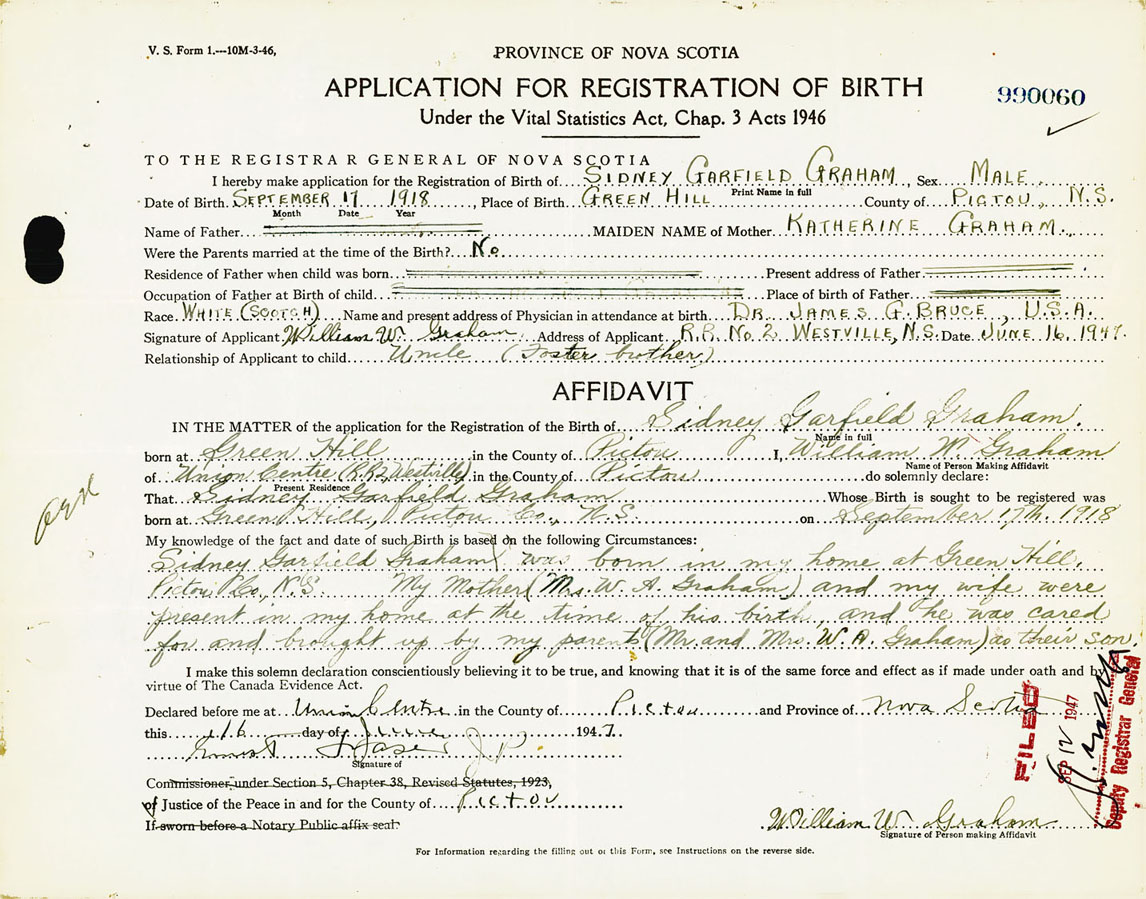 V. S. Form 1.—10M-3-46,
PROVINCE OF NOVA SCOTIA
APPLICATION FOR REGISTRATION OF BIRTH
990060
Under the Vital Statistics Act, Chap. 3 Acts 1946
TO THE REGISTRAR GENERAL OF NOVA SCOTIA
I hereby make application for the Registration of Birth of SIDNEY GARFIELD GRAHAM, Sex MALE
Print Name in full
Date of Birth SEPTEMBER 17 1918, Place of Birth GREEN HILL County of PICTOU, N.S.
Month Date Year
Name of Father MAIDEN NAME of Mother KATHERINE GRAHAM.
Were the Parents married at the time of the Birth? No
Residence of Father when child was born Present address of Father
Occupation of Father at Birth of child Place of birth of Father
Race WHITE (SCOTCH) Name and present address of Physician in attendance at birth DR. JAMES G. BRUCE, U.S.A.
Signature of Applicant William W. Graham Address of Applicant R.R. No. 2 WESTVILLE, N.S. Date JUNE 16, 1947.
Relationship of Applicant to child Uncle (Foster brother)
AFFIDAVIT
IN THE MATTER of the application for the Registration of the Birth of Sidney Garfield Graham.
Name in full
born at Green Hill in the County of Pictou I, William W. Graham
Name of Person Making Affidavit
of Union Centre (R.R.2, Westville) in the County of Pictou do solemnly declare:
Present Residence
That Sidney Garfield Graham Whose Birth is sought to be registered was
born at Green Hill, Pictou Co., N.S. on September 17th. 1918
My knowledge of the fact and date of such Birth is based on the following Circumstances:
Sidney Garfield Graham was born in my home at Green Hill,
Pictou Co., N.S. My Mother (Mrs. W. A. Graham) and my wife were
present in my home at the time of his birth, and he was cared
for and brought up by my parents (Mr. and Mrs. W. A. Graham) as their son.
I make this solemn declaration conscientiously believing it to be true, and knowing that it is of the same force and effect as if made under oath and by
virtue of The Canada Evidence Act.
Declared before me at Union Centre in the County of Pictou and Province of Nova Scotia
this 16 day of June 1947.
Fraser J.P.
Signature of
Commissioner under Section 5, Chapter 38, Revised Statutes, 1923,
of Justice of the Peace in and for the County of Pictou
If sworn before a Notary Public affix seal.
William W. Graham
Signature of Person making Affidavit
For Information regarding the filling out of this Form, see Instructions on the reverse side.
FILED
SEP 12 1947
Deputy Registrar General